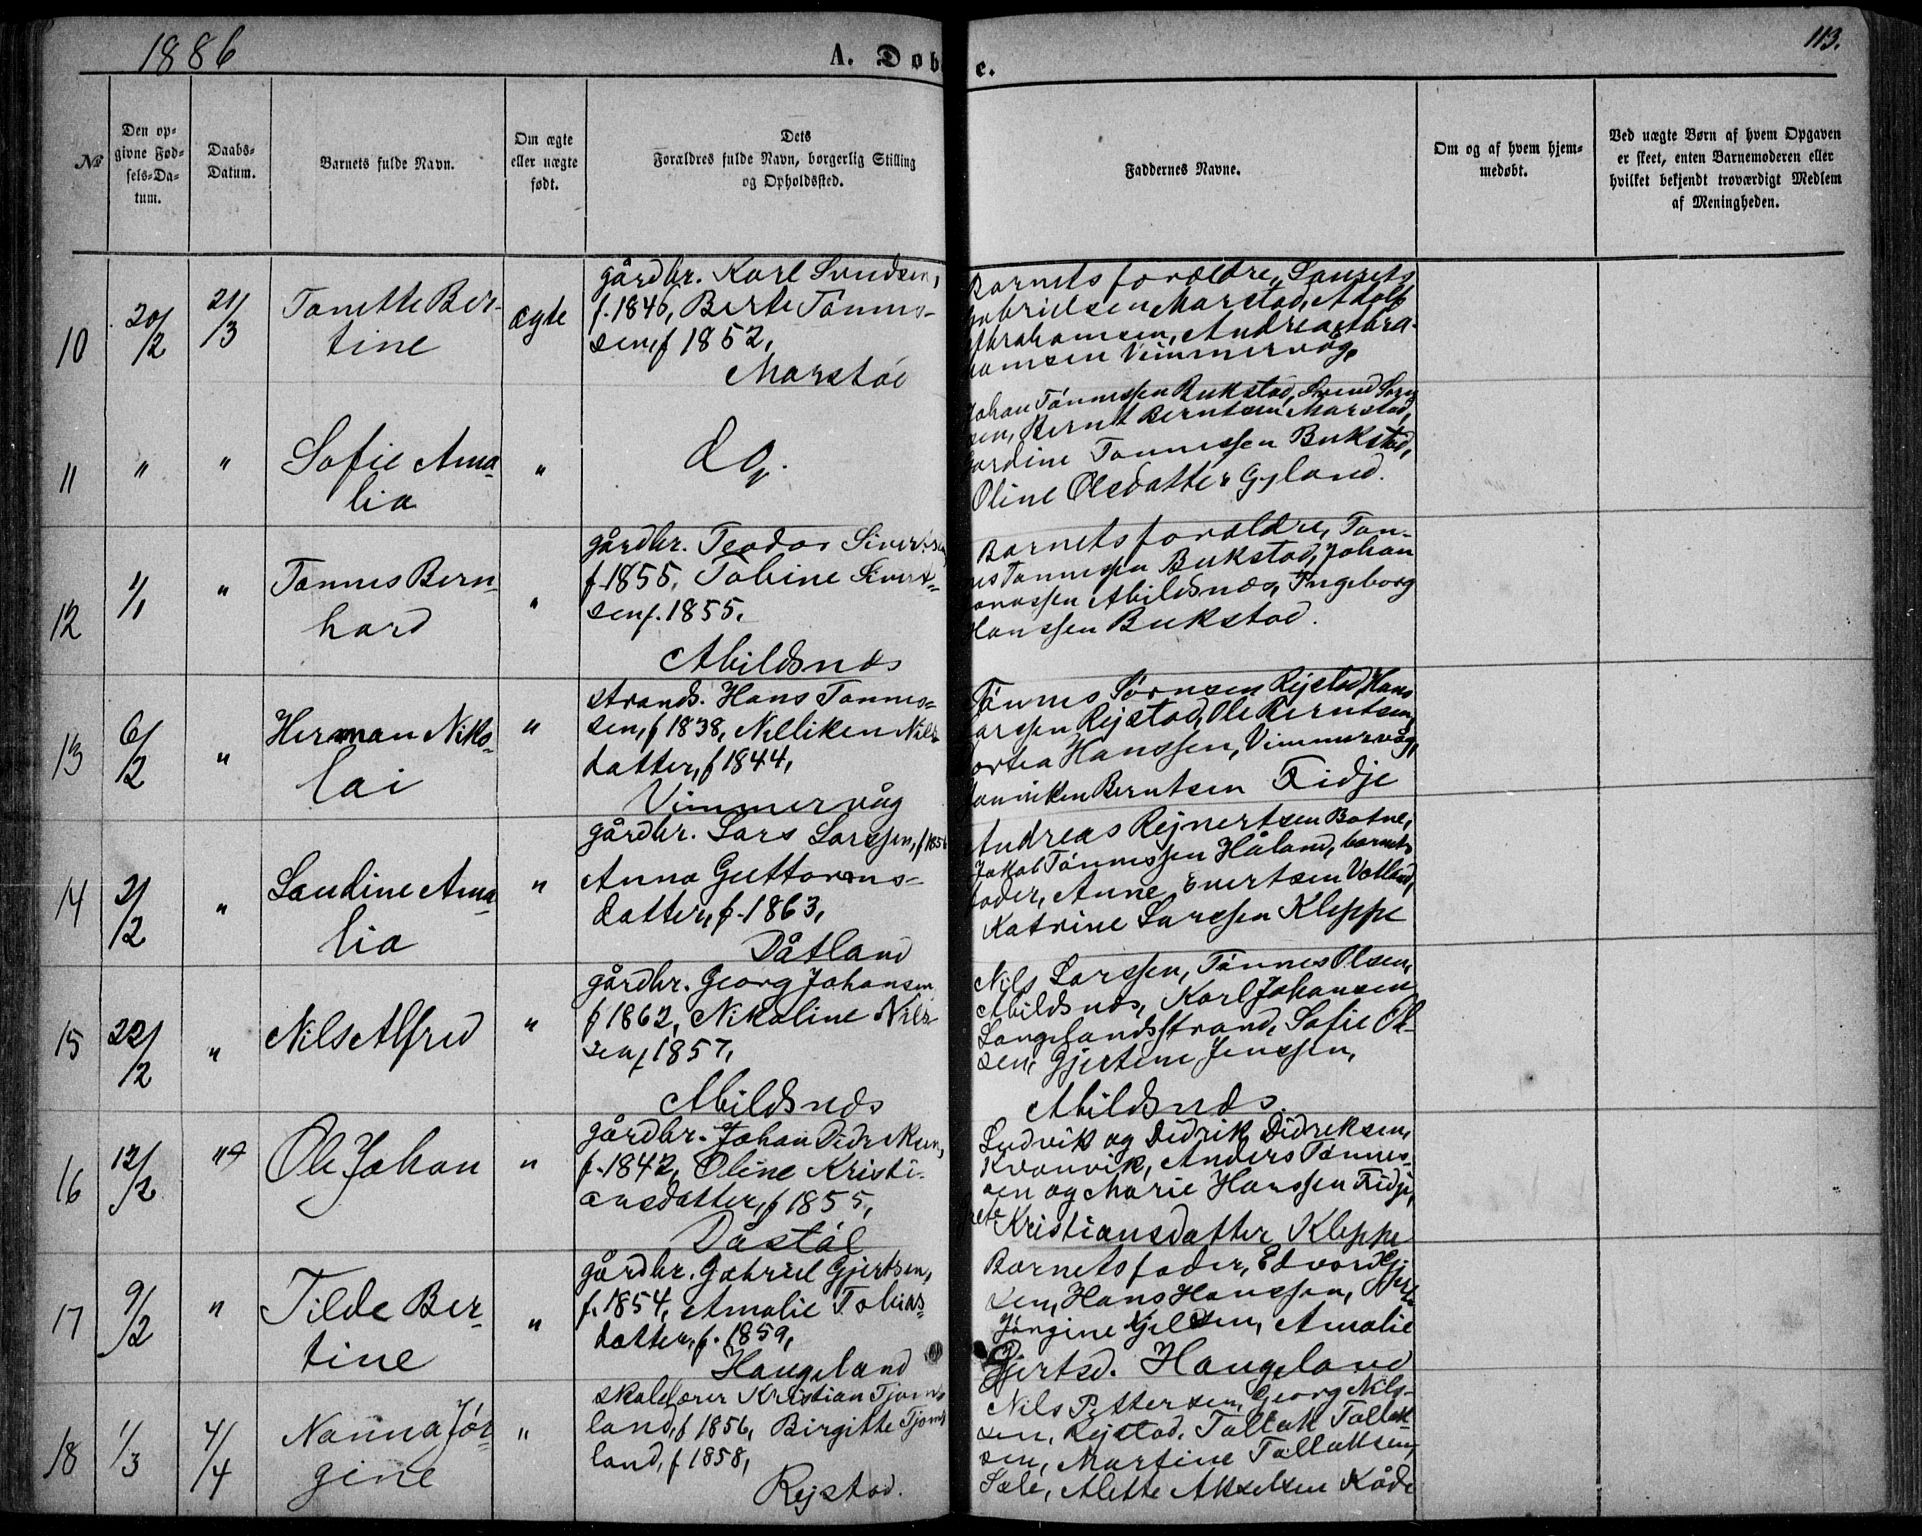 1886
A. Døbte.
113.
№
Den op-
givne Fød-
sels-Da-
tum.
Daabs-
Datum.
Barnets fulde Navn.
Om ægte
eller uægte
født.
Dets
Forældres fulde Navn, borgerlig Stilling
og Opholdssted.
Faddernes Navne.
Om og af hvem hjem-
medøbt.
Ved uægte Børn af hvem Opgaven
er skeet, enten Barnemoderen eller
hvilket bekjendt troværdigt Medlem
af Meningheden.
10
20/2
21/3
Tanette Ber-
tine
ægte
gårdbr. Karl Svendsen,
f. 1846, Berte Tønnes-
sen, f 1852,
Marstøl
Barnets forældre, Laurets
Gabrielsen Marstad, Adolf
Abrahamsen, Andrea Abra-
hamsen Vimmervåg,
11
"
"
Sofie Ama-
lia
"
do.
Johan Tønnessen Bukstad, Svend
sen, Bernt Berntsen Marstad,
Tønnessen Bukstad,
Oline Olsdatter Gyland.
12
1/1
"
Tønnes Bern-
hard
"
gårdbr. Teodor Sivertsen
f. 1855, Tobine Sivert-
sen f. 1855,
Abildsnæs
Barnets forældre, Tøn-
nes Tønnessen Bukstad, Johan
Abildsnæs, Ingeborg
Hanssen Bukstad.
13
6/2
"
Herman Niko-
lai
"
strands. Hans Tønnes-
sen, f 1838, Nilliken Nils-
datter, f 1844,
Vimmervåg
Tønnes Sørensen Rejstad, Hans
Larssen Rejstad, Ole Berntsen,
Hanssen, Vimmervåg,
Berntsen Fidje
14
2/2
"
Laudine Ama-
lia
"
gårdbr. Lars Larssen, f 1856
Anna Guttorms-
datter, f. 1863,
Dåtland
Andreas Rejnertsen Botne,
Jakob Tønnessen Håland, barnets
fader, Anne Evertsen Vatland,
Katrine Larssen Kleppe
15
22/2
"
Nils Alfred
"
gårdbr. Georg Johansen
f 1862, Nikoline Nils-
sen, 1857,
Abildsnæs
Nils Larssen, Tønnes Olsen,
Abildsnæs, Karl Johansen
Langelandsstrand, Sofie Ol-
sen, Gjertine Jenssen,
Abildsnæs
16
12/2
"
Ole Johan
"
gårdbr. Johan Didriksen,
f. 1842, Oline Kristi-
ansdatter, f 1855,
Dåstøl
Ludvik og Didrik Didriksen,
Kvanvik, Anders Tønnes-
sen og Marie Hanssen Fidje,
Kristiansdatter Kleppe
17
9/2
"
Tilde Ber-
tine
"
gårdbr. Gabriel Gjertsen,
f. 1854, Amalie Tobias-
datter, f. 1859,
Haugeland
Barnets fader, Edvard Gjert-
sen, Hans Hanssen,
Jørgine Amalie
Gjertsd. Haugeland
18
1/3
4/4
Nanna Jør-
gine
"
skolelærer Kristian Tjoms-
land, f 1856, Birgitte Tjoms-
land, f 1858,
Rejstad.
Nils Pettersen, Georg Nils-
sen, Rejstad, Tallak Tallak-
sen, Martine Tallaksen,
Sæle, Alette Akselsen Kåde